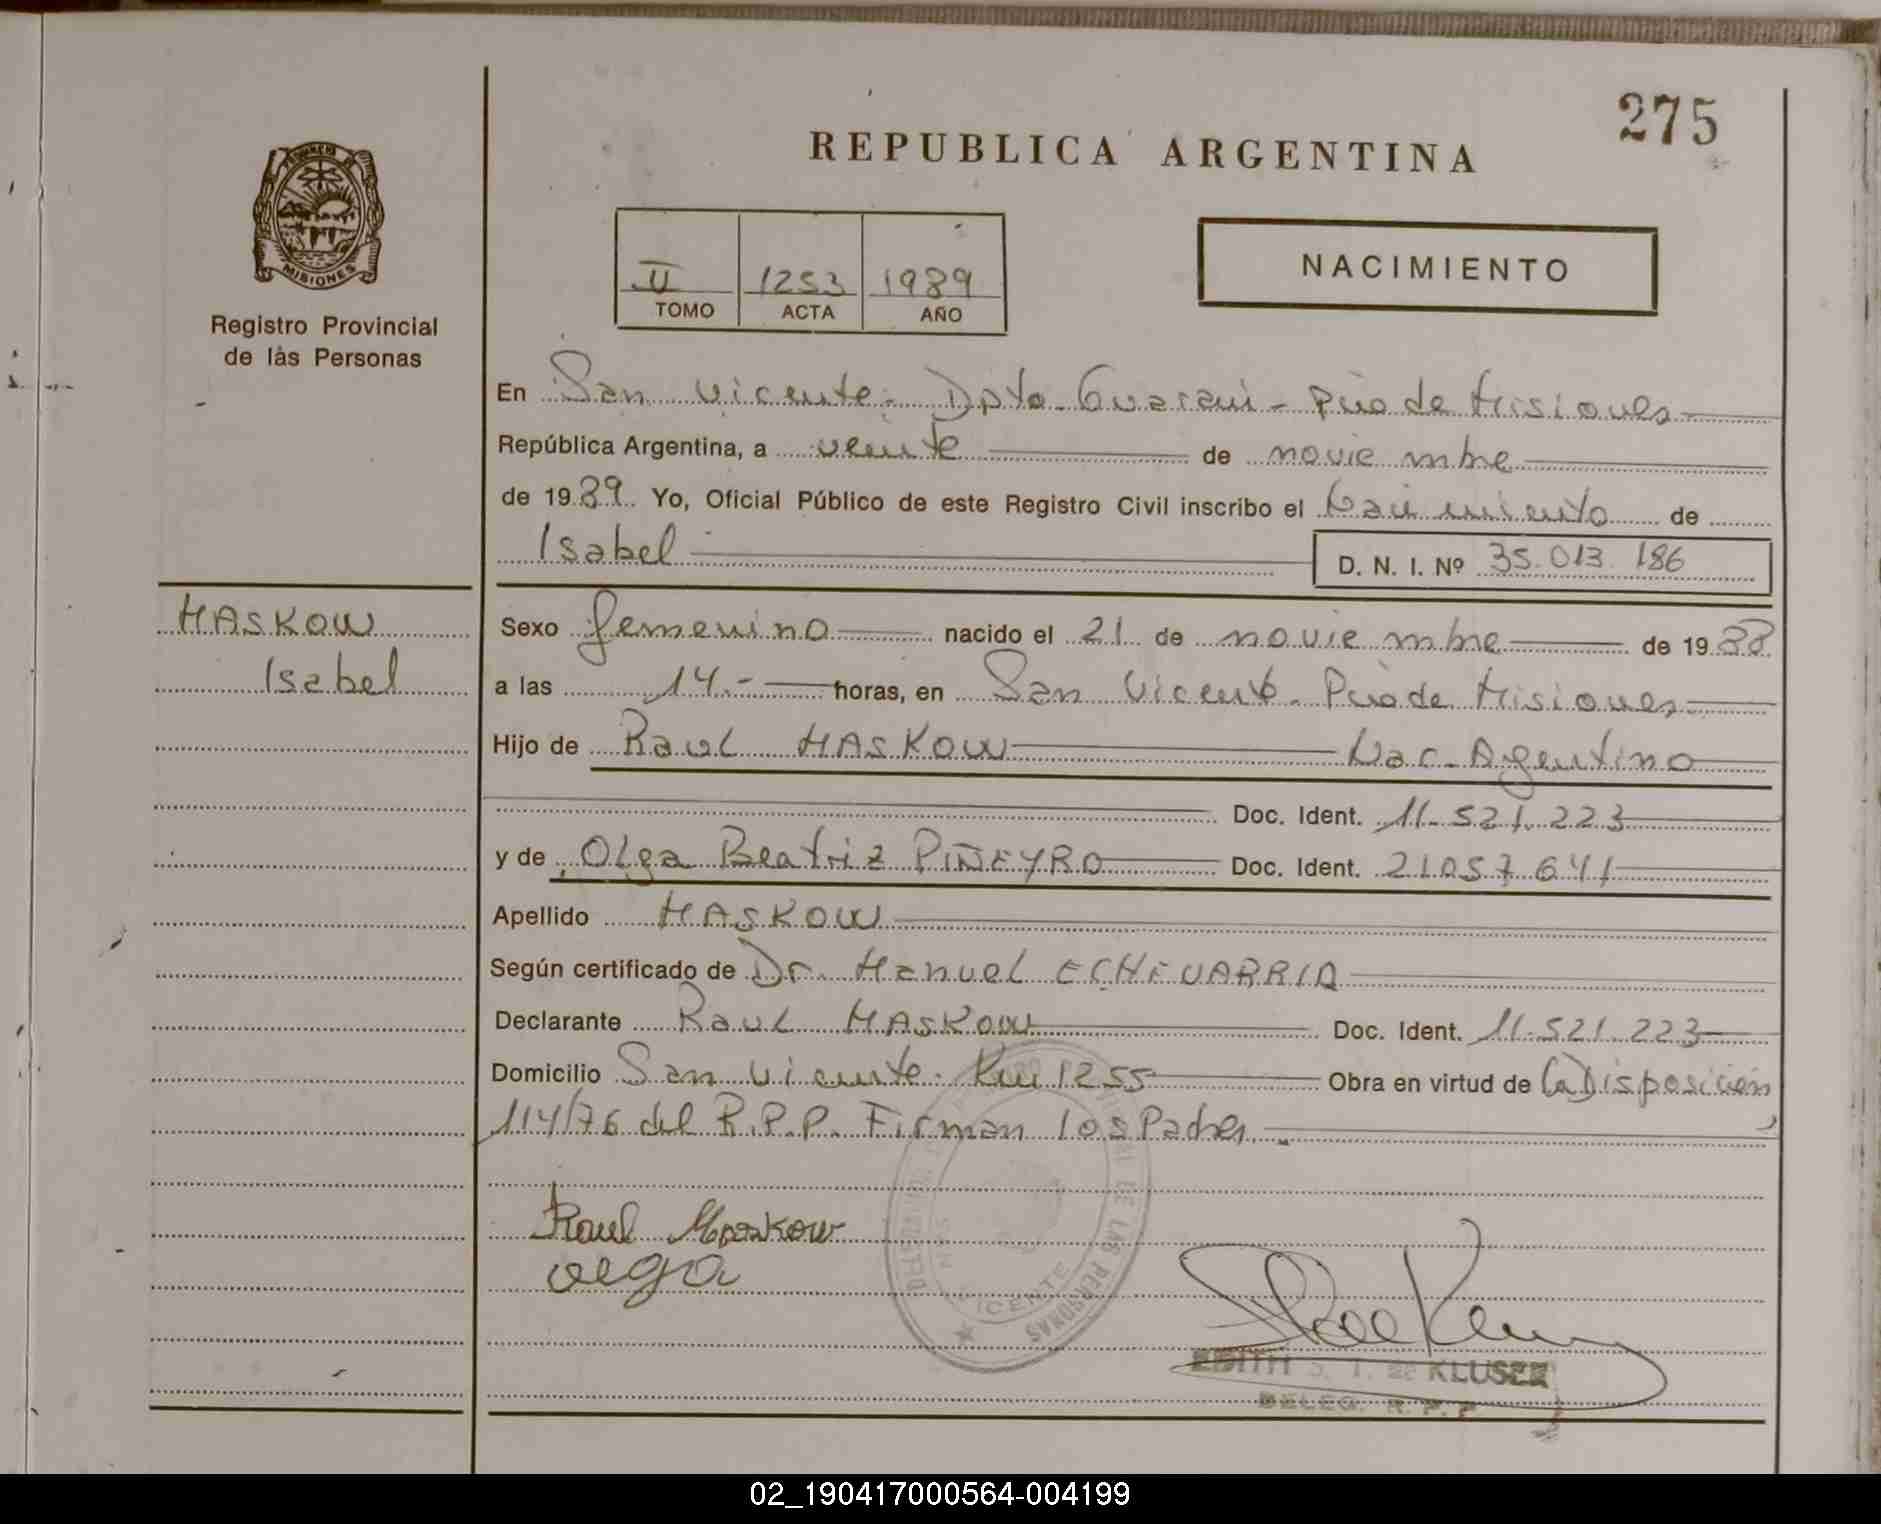 275
REPUBLICA ARGENTINA
PROVINCIA DE
MISIONES
Registro Provincial
de las Personas
II 1253 1989
TOMO ACTA AÑO
NACIMIENTO
En San Vicente. Dpto. Guaraní - Pcia de Misiones
República Argentina, a veinte de noviembre
de 1989. Yo, Oficial Público de este Registro Civil inscribo el Nacimiento de
Isabel D. N. I. Nº 35.013.186
MASKOW
Isabel
Sexo femenino nacido el 21 de noviembre de 1988
a las 14.- horas, en San Vicente. Pcia de Misiones
Hijo de Raul MASKOW Nac. Argentino
Doc. Ident. 11.521.223
y de Olga Beatriz PIÑEYRO Doc. Ident. 21057641
Apellido MASKOW
Según certificado de Dr. Manuel ECHEVARRIA
Declarante Raul MASKOW Doc. Ident. 11.521.223
Domicilio San Vicente. Km 1255 Obra en virtud de la Disposición
114/76 del R.P.P. Firman los Padres.
Raul Maskow
olga
VICENTE
DE LAS PERSONAS
EDITH DE KLUSER
DELEG. R. P. P.
02_190417000564-004199